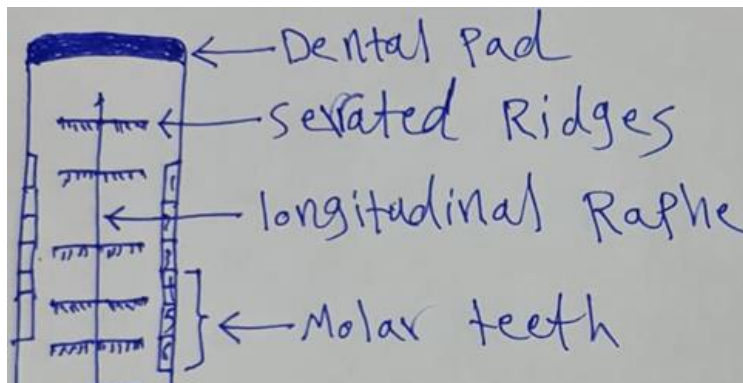 Dental Pad
Serrated Ridges
longitudinal Raphe
Molar teeth